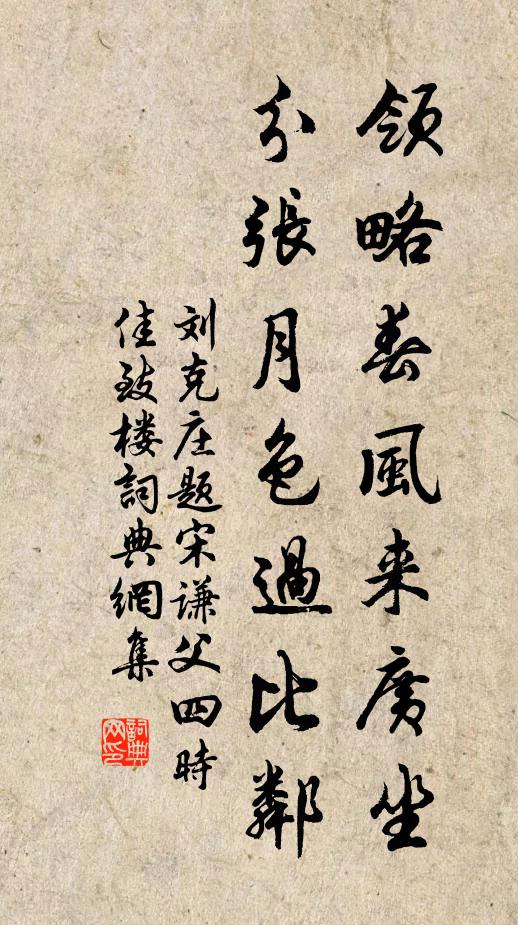 領略春風来廣坐
分張月色過比鄰
刘克庄题宋谦父四時
佳致楼詞典網集
詞典網印